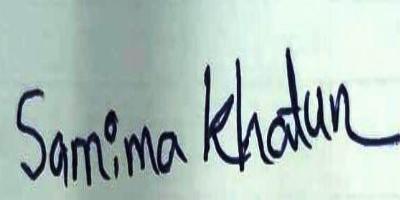 Samima Khatun